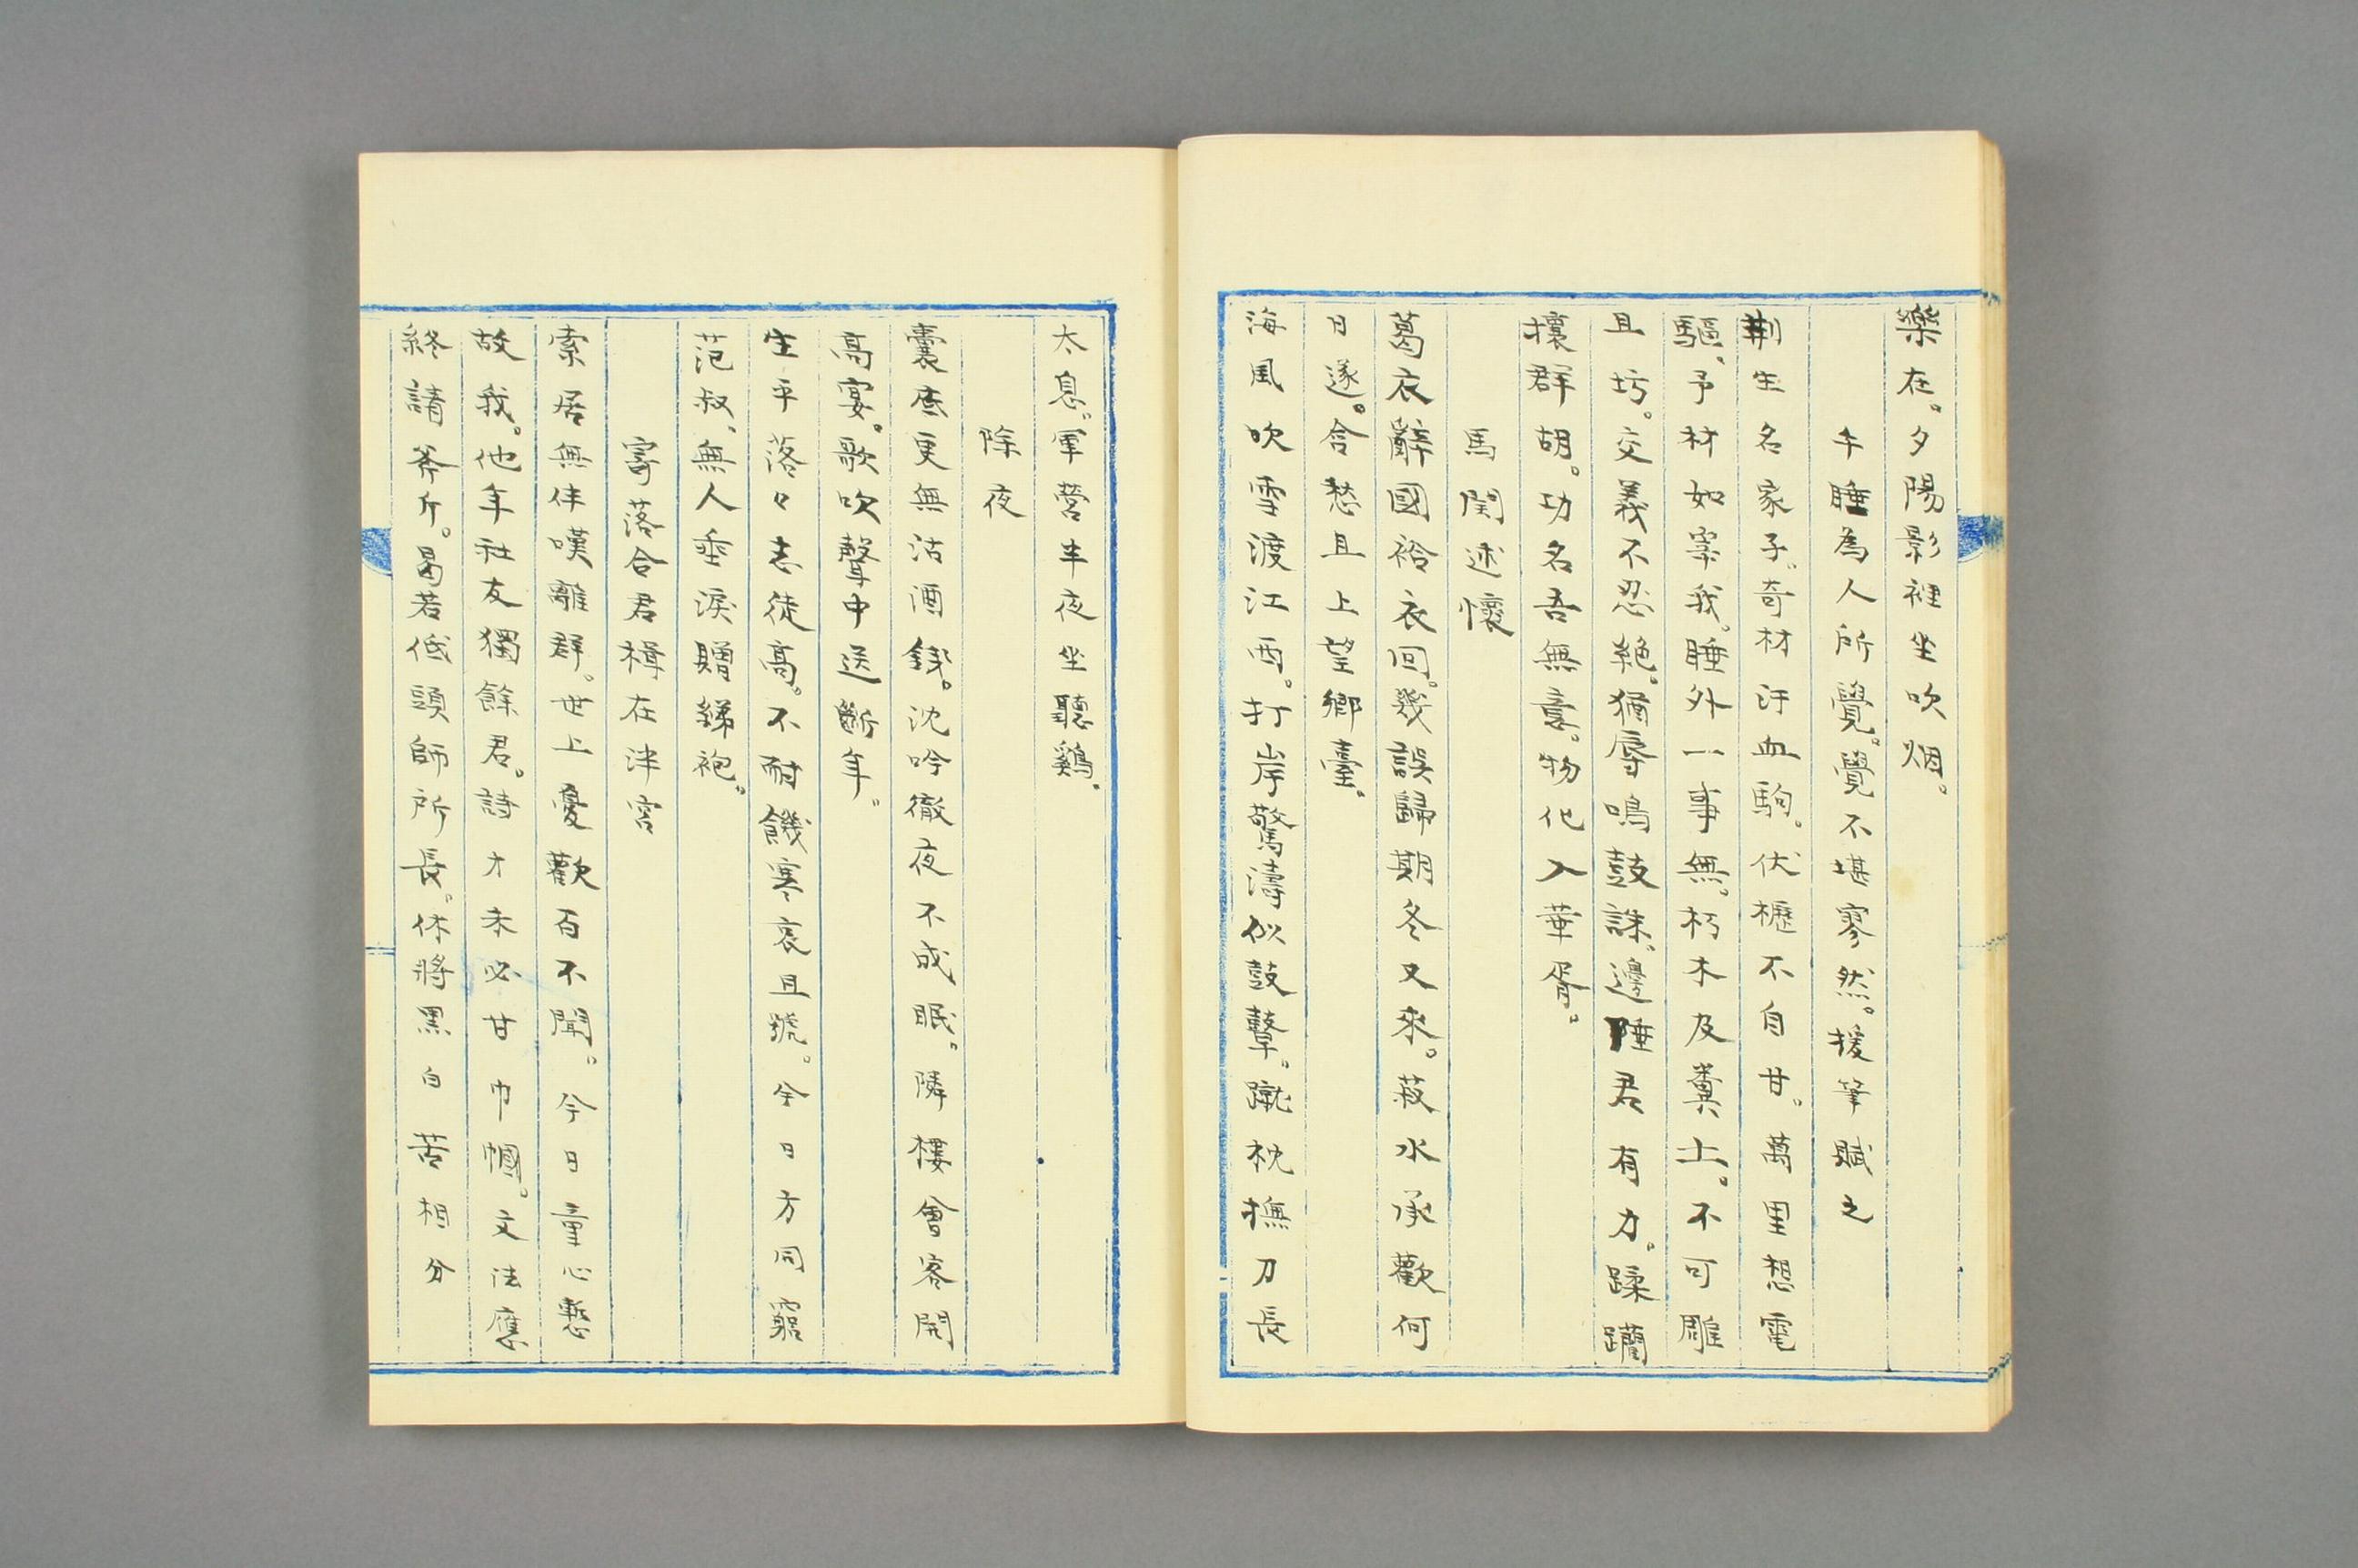 樂在。夕陽影裡坐吹烟。
午睡為人所覺。覺不堪寥然。援筆賦之
荆生名家子。奇材汗血駒。伏櫪不自甘。萬里想電
驅、予材如棄我。睡外一事無。朽木及糞土。不可雕
且圬。交義不忍絶。猶辱鳴鼓誅。邊陲君有力。蹂躪
攘群胡。功名吾無意。物化入華胥。
馬関述懷
葛衣辭國袷衣回。幾誤歸期冬又來。菽水承歡何
日遂。含愁且上望鄉臺。
海風吹雪渡江西。打岸驚濤似鼓鼙。蹴枕撫刀長
太息。軍營半夜坐聽鷄。
除夜
囊底更無沽酒錢。沈吟徹夜不成眠。隣樓會客開
高宴。歌吹聲中送斷年。
生平落々志徒高。不耐饑寒哀且號。今日方同窮
范叔、無人垂淚贈綈袍。
寄落合君楫在津容
索居無伴嘆離群。世上憂歡百不聞。今日童心慙
故我。他年社友獨餘君。詩才未必甘巾幗。文法應
終請斧斤。曷若低頭師所長。休將黑白苦相分